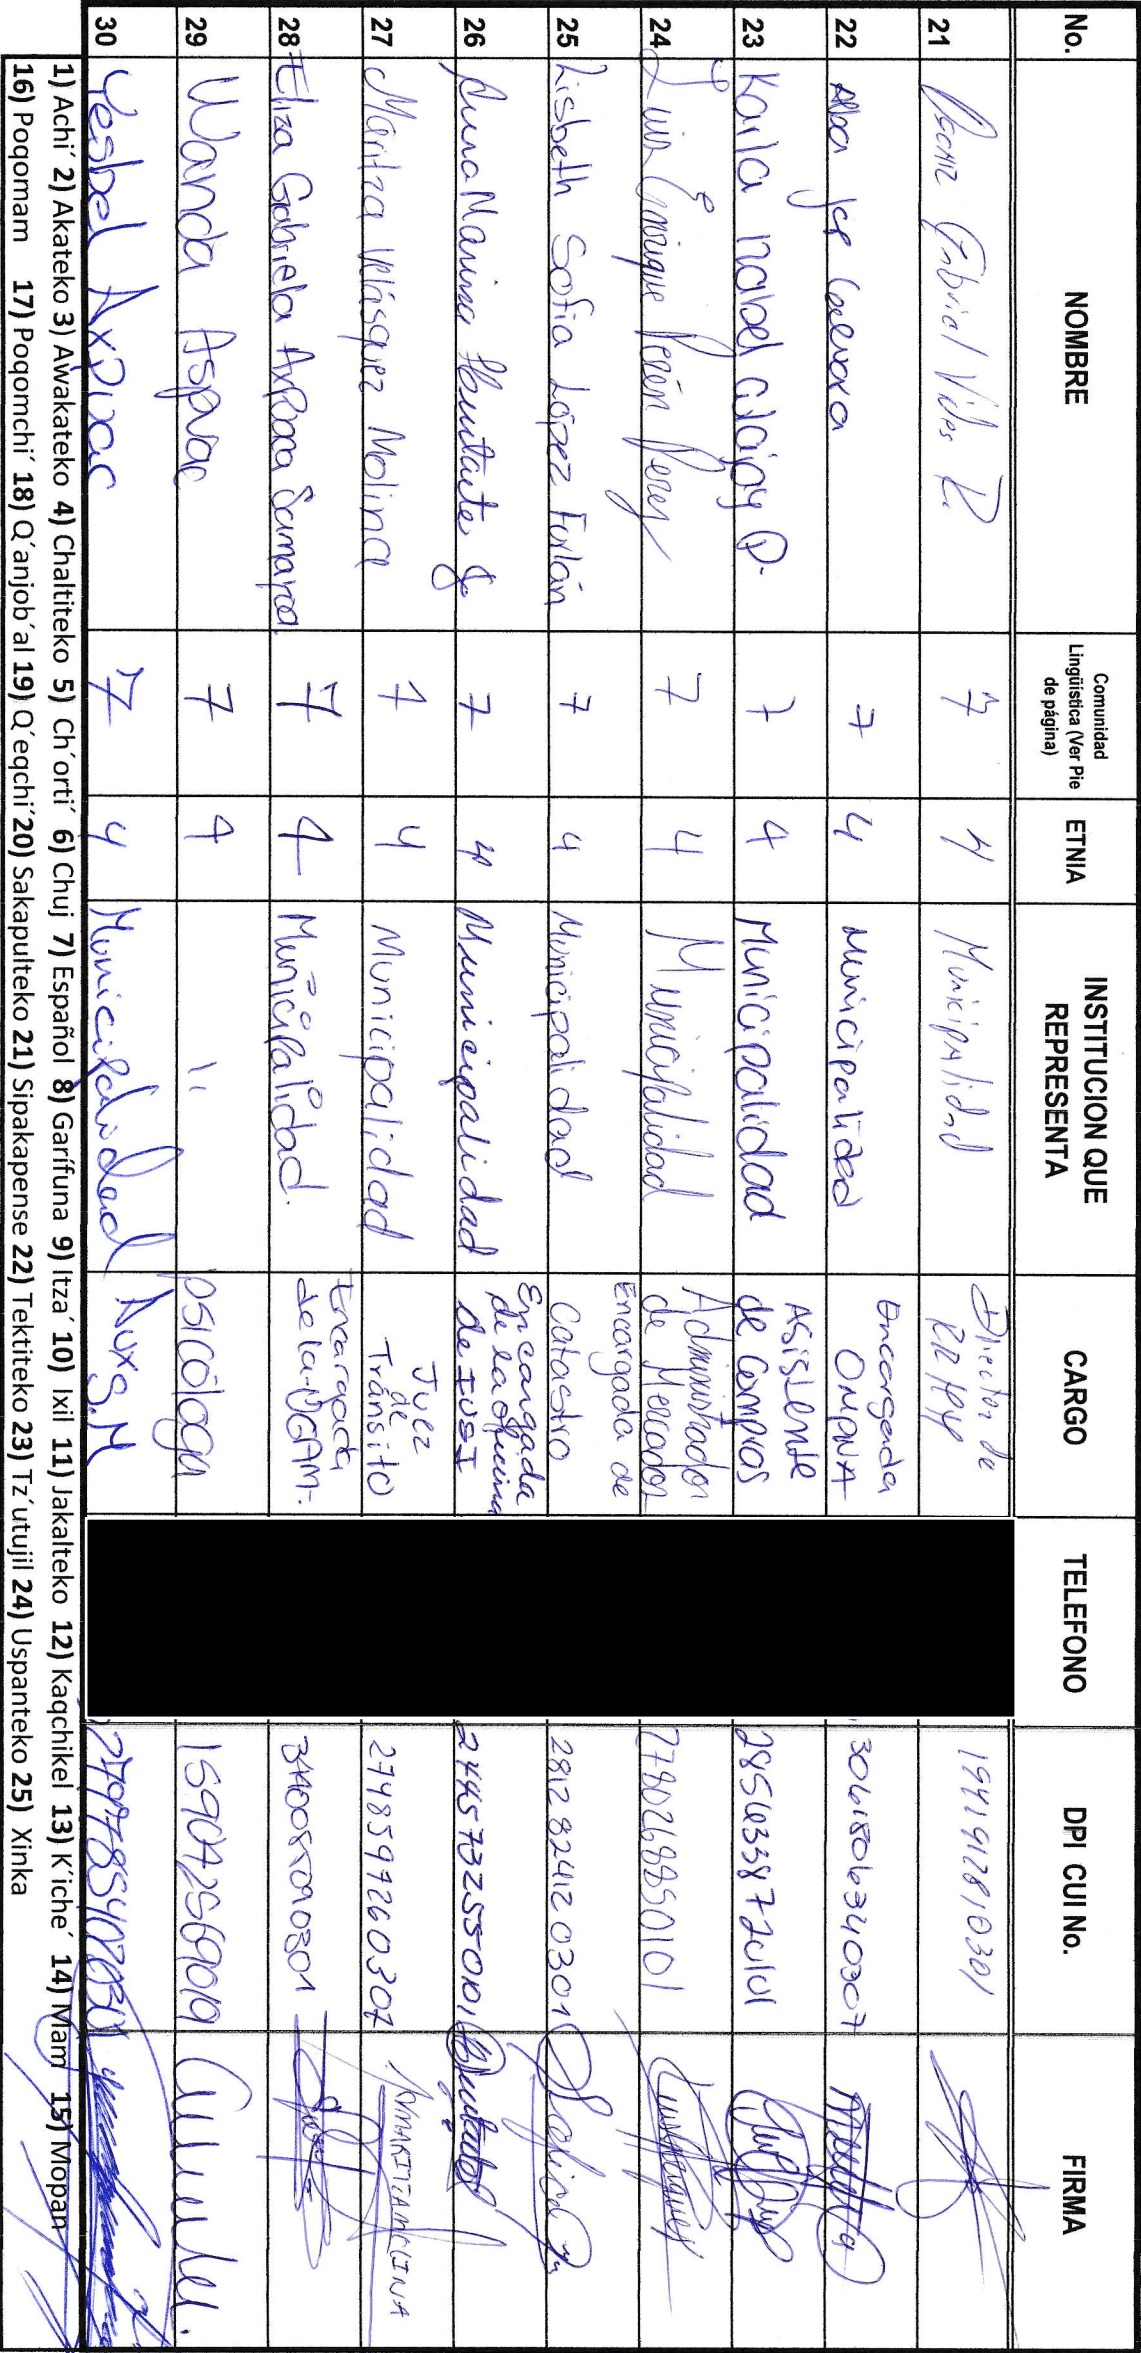 No. NOMBRE Comunidad Lingüistica (Ver Pie de página) ETNIA INSTITUCION QUE REPRESENTA CARGO TELEFONO DPI CUI No. FIRMA
21 Gabriel Vides R. 7 4 Municipalidad Director de RRHH 1941912810301
22 Alba 7 4 Municipalidad Encargada OMPNA 3061806340307
23 Karla Izabel Q. 7 4 Municipalidad Asistente de Compras
24 Luis Enrique Perén Perez 7 4 Municipalidad Administrador de Mercados 2780268850101
25 Lisbeth Sofia López Furlán 7 4 Municipalidad Encargada de Catastro 2812824120301
26 Anna Marina 7 4 Municipalidad Encargada de la oficina de IUSI 2445732550101
27 Maritza Velásquez Molina 7 4 Municipalidad Juez de Tránsito 2748597260307 MARITZA MOLINA
28 Eliza Gabriela 7 4 Municipalidad. Encargada de la UGAM.
29 Wanda Aspuac 7 4 " psicóloga
30 Yesbel Axpuac 7 4 Municipalidad Aux S.M
1) Achi´ 2) Akateko 3) Awakateko 4) Chaltiteko 5) Ch´orti´ 6) Chuj 7) Español 8) Garífuna 9) Itza´ 10) Ixil 11) Jakalteko 12) Kaqchikel 13) K´iche´ 14) Mam 15) Mopan
16) Poqomam 17) Poqomchi´ 18) Q´anjob´al 19) Q´eqchi´ 20) Sakapulteko 21) Sipakapense 22) Tektiteko 23) Tz´utujil 24) Uspanteko 25) Xinka